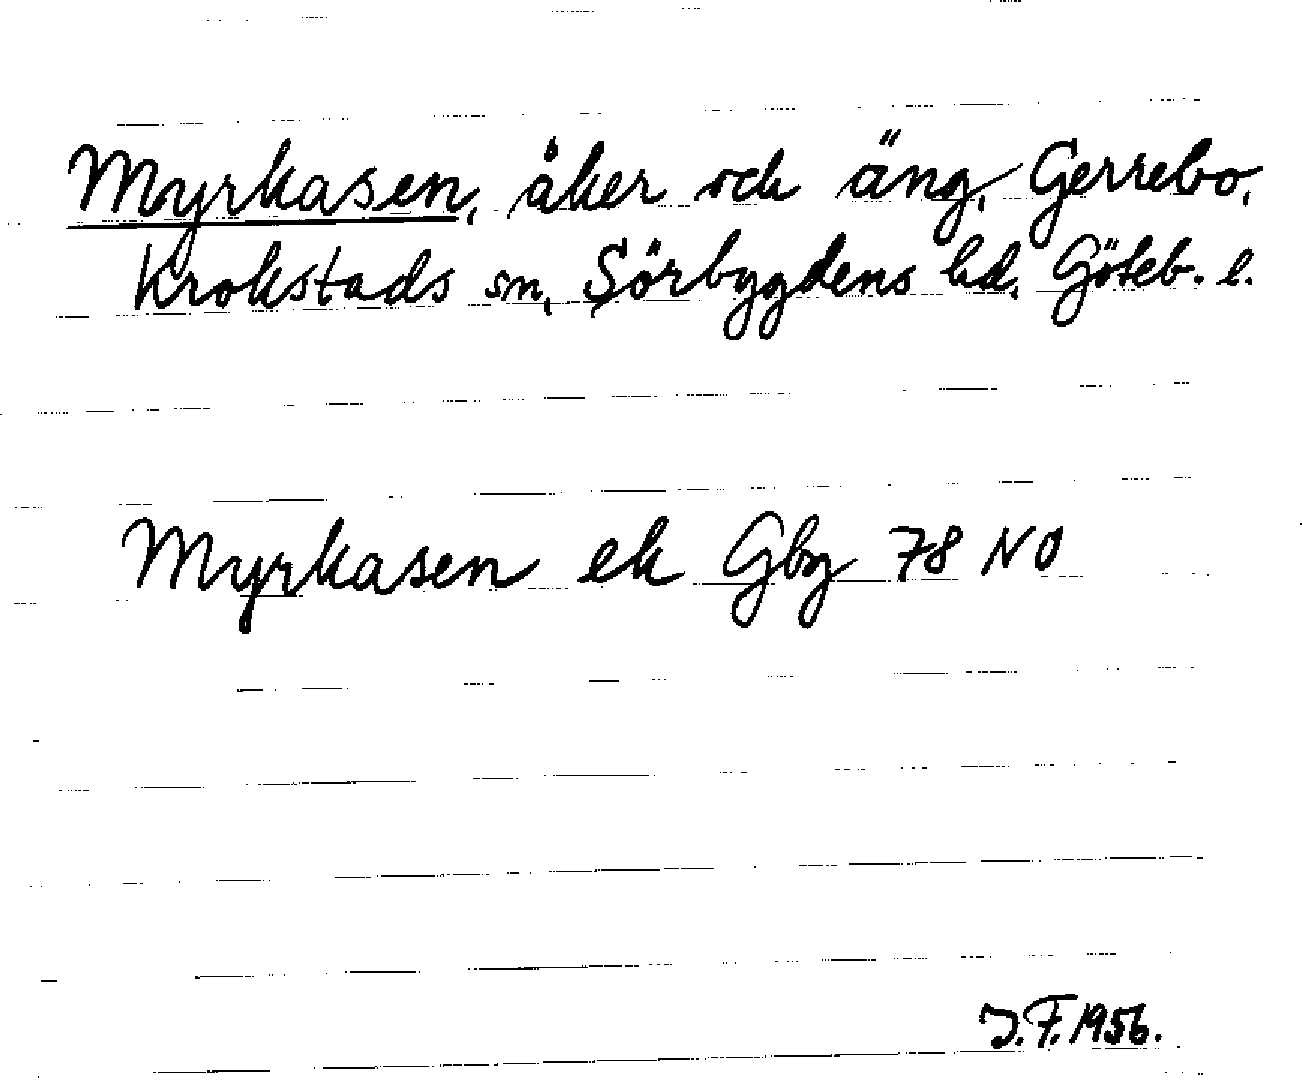 Myrkasen, åker och äng, Gerrebo,
Krokstads sn, Sörbygdens hd, Göteb. l.
Myrkasen ek Gbg 78 NO
J.F. 1956.